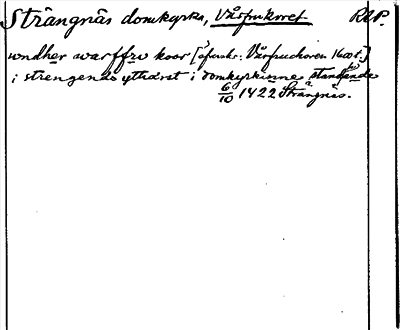 Strängnäs domkyrka, Vårfrukoret. RAP.
wndher warffrv koor [påskr: Vårfruekoren 1600 t.]
i strengenäs ytthærst i domkyrkionne standande
6/10 1422 Strängnäs.